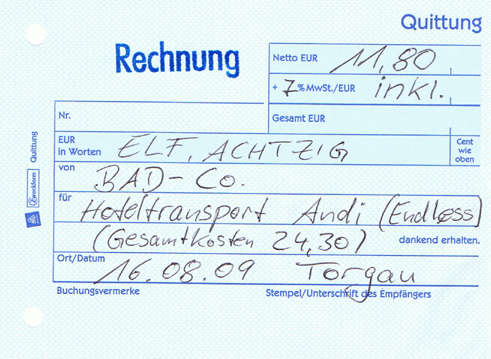 Quittung
Rechnung
Netto EUR 11,80
+ 7 % MwSt./EUR inkl.
Nr. Gesamt EUR
EUR in Worten ELF, ACHTZIG Cent wie oben
von BAD-Co.
für Hoteltransport Andi (Endless)
(Gesamtkosten 24,30) dankend erhalten.
Ort/Datum 16.08.09 Torgau
Buchungsvermerke Stempel/Unterschrift des Empfängers
Zweckform Quittung